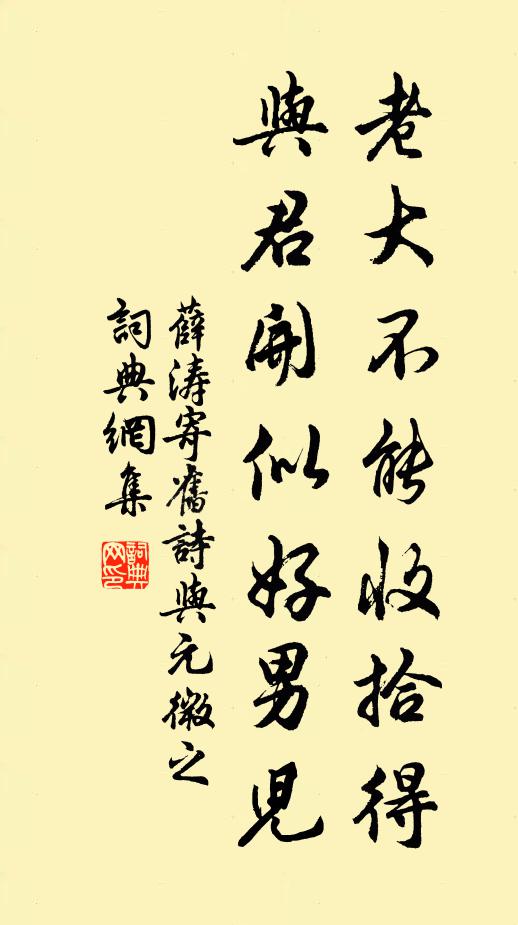 老大不能收拾得
與君開似好男兒
薛濤寄舊詩與元微之
詞典網集
詞典
网印